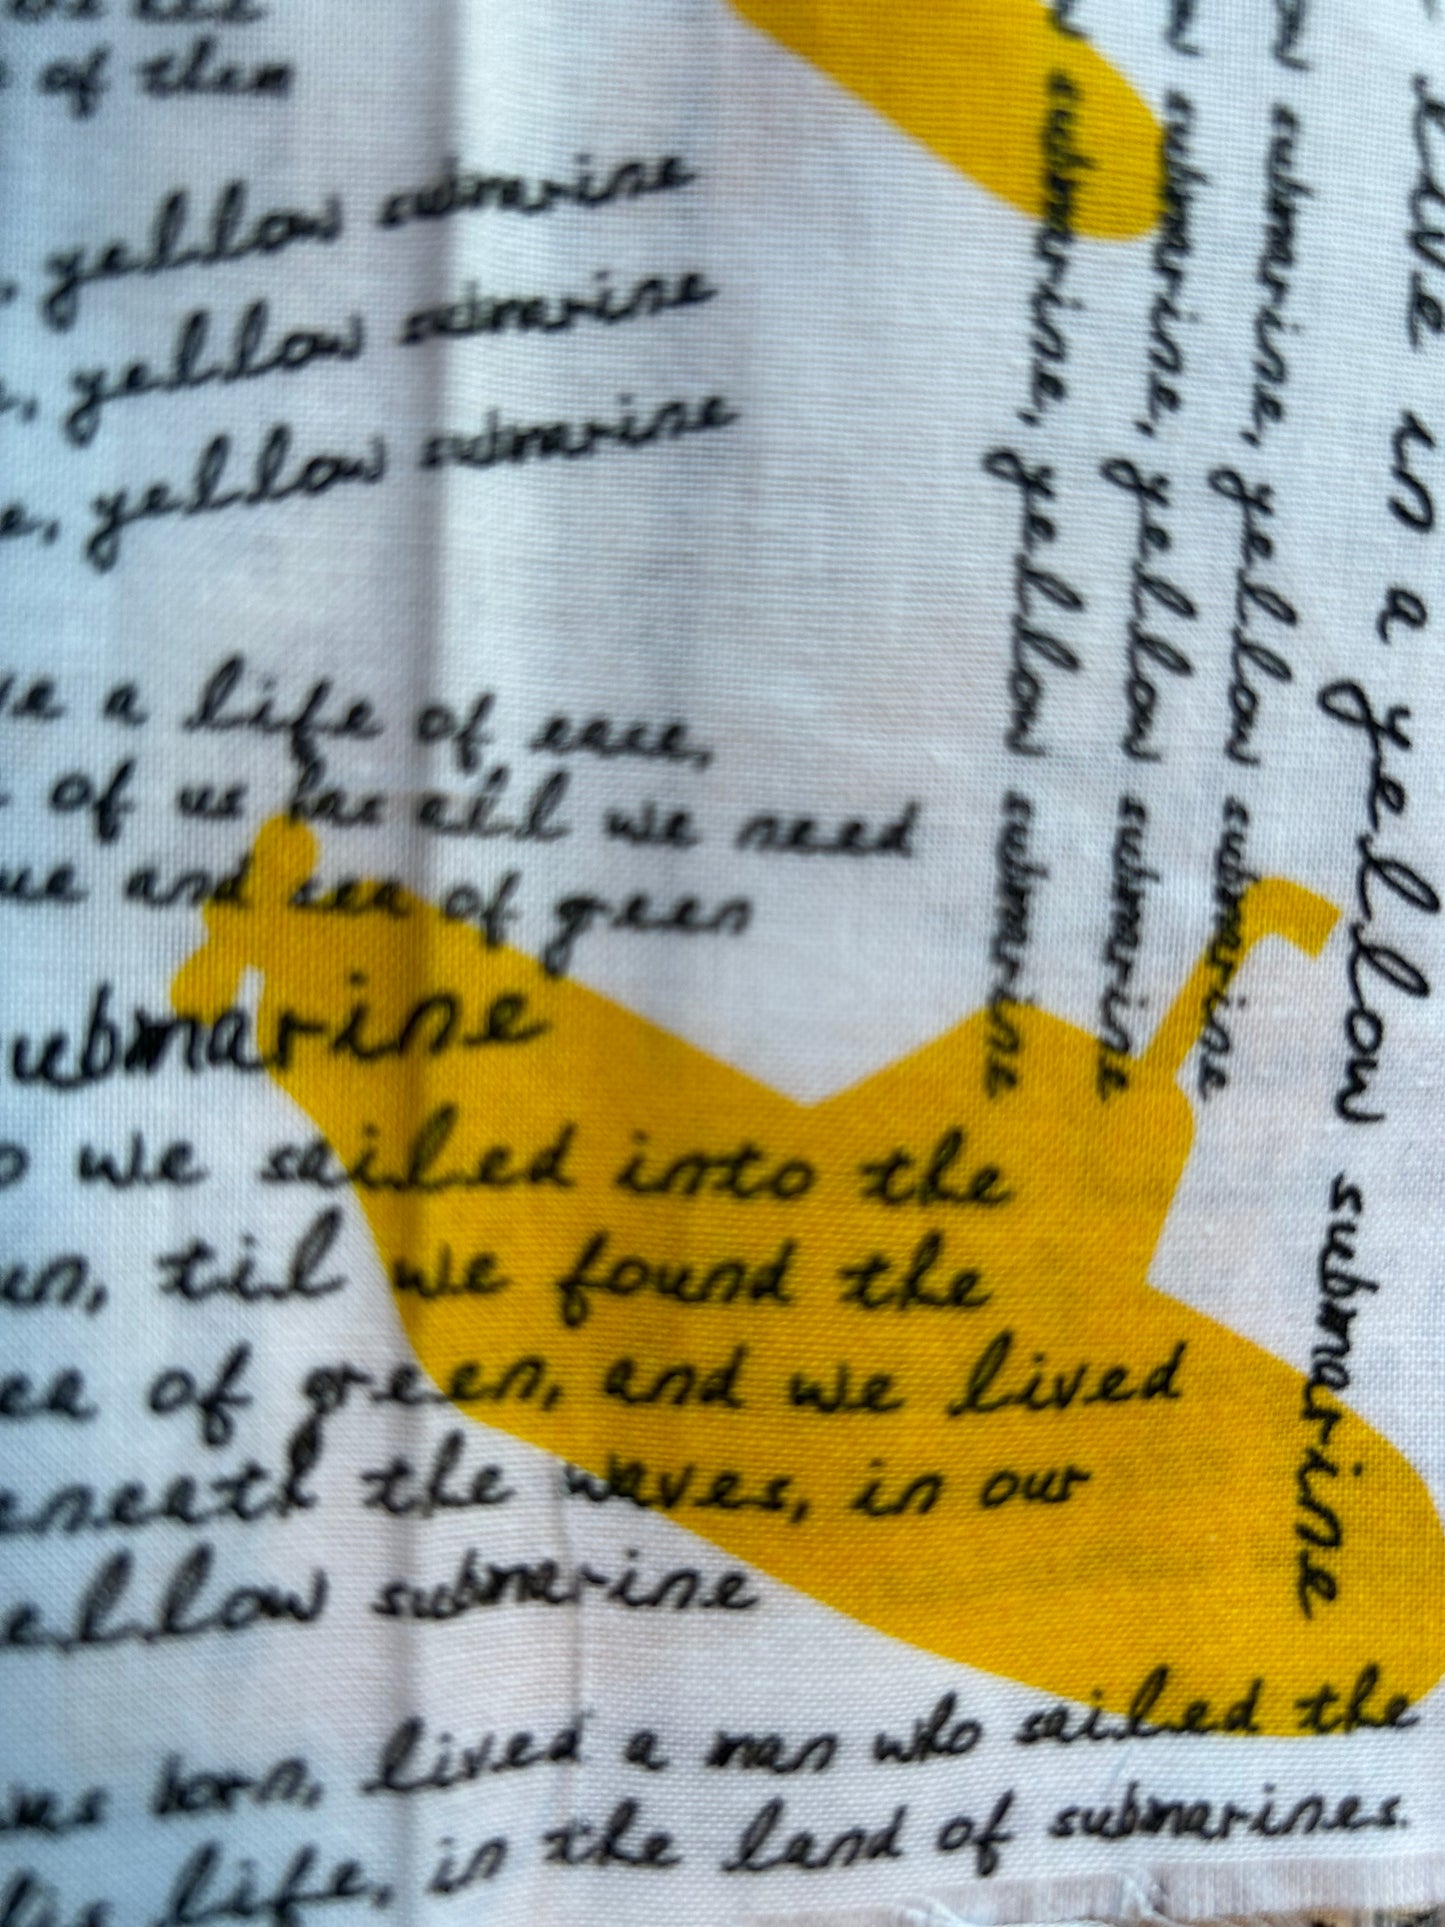 of them
yellow submarine
yellow submarine
e, yellow submarine
a life of ease,
of us has all we need
ue and sea of green
submarine
we sailed into the
un, til we found the
ea of green, and we lived
eneath the waves, in our
ellow submarine
was born, lived a man who sailed the
his life, in the land of submarines.
submarine, yellow submarine
submarine, yellow submarine
submarine, yellow submarine
live in a yellow submarine